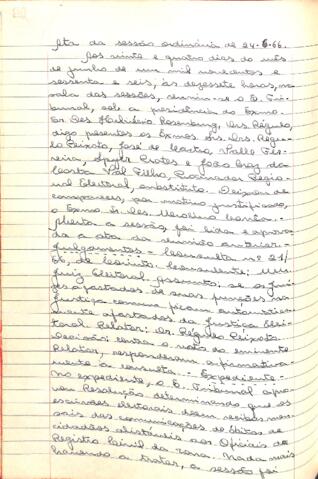 Ata da sessão ordinária de 24-6-66.
Aos vinte e quatro dias do mês
de junho de um mil novecentos e
sessenta e seis, às dezessete horas, na
sala das sessões, reuniu-se o E. Tri-
bunal, sob a presidência do Exmo.
Sr. Des. Rosenburg,
digo presentes os Exmos. Srs. Drs. Régu-
lo Peixoto, José de Costa, Valle Fer-
reira, Prates e João Braz da
Costa Val Filho, Procurador Regio-
nal Eleitoral, substituto. Deixou de
comparecer, por motivo justificado,
o Exmo. Sr. Des.
Aberta a sessão, foi lida e aprova-
da a ata da reunião anterior.-
Julgamentos - Consulta nº 21/
66, de Corinto. Consulente: MM.
Juiz Eleitoral. Assunto: se os Juí-
zes afastados de suas funções na
Justiça comum ficam automatica-
mente afastados da Justiça Elei-
toral. Relator: Dr. Régulo Peixoto.
Decisão: contra o voto do eminente
Relator, responderam afirmativa-
mente a consulta. - Expediente:
No expediente, o E. Tribunal apro-
vou Resolução determinando que os
escrivães eleitorais deem recibos men-
sais das comunicações de óbitos de
cidadãos alistáveis aos Oficiais do
Registro Civil da zona. Nada mais
havendo a tratar, a sessão foi